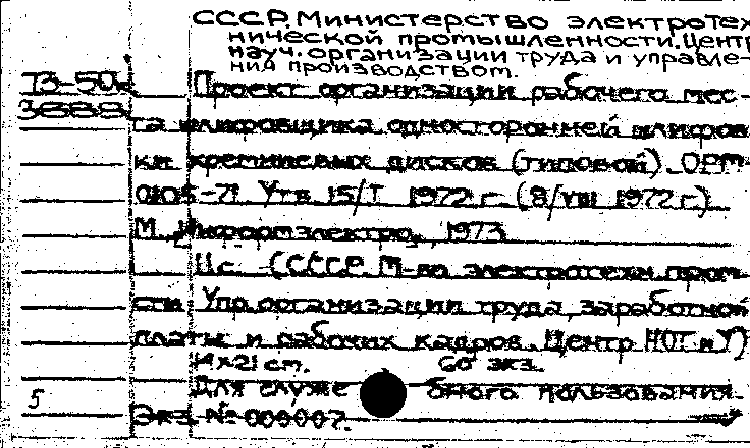 СССР. Министерство электротех
нической промышленности. Центр
науч. организации труда и управле-
ния производством.
73-50к
3888
Проект организации рабочего мес-
та шлифовщика односторонней шлифов
ки кремниевых дисков (типовой). ОРМ-
0105-71 Утв 15/I 1972 г. (8/VIII 1972 г)
М., Информэлектро, 1973
11 с. (СССР М-во электротехн. пром-
сти Упр. организации труда, заработной
платы и рабочих кадров. Центр НОТ и У)
14×21 cm. 60 экз.
Для служебного пользования.
5
Экз. № 000007.